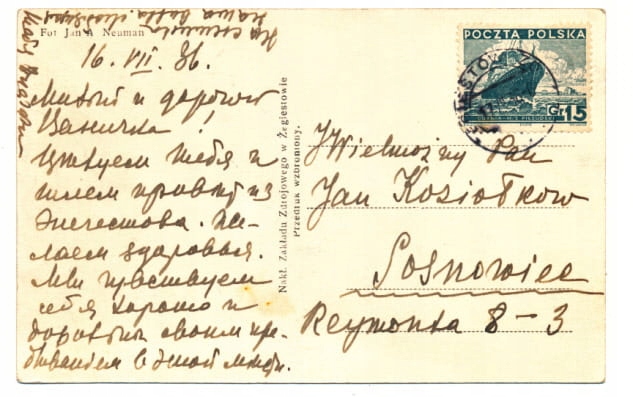 Fot Jan A Neuman
16. VII. 36.
Милый и дорогой
Ваничка!
Целуем тебя и
шлем привет из
Жегестова. Же-
лаем здоровья.
Мы чувствуем
себя хорошо и
довольны своим пре-
быванием в этой
Nakł. Zakładu Zdrojowego w Żegiestowie
Przedruk wzbroniony.
POCZTA POLSKA
GDYNIA - M/S PIŁSUDSKI
GR 15
JWielmożny Pan
Jan Koziołkow
Sosnowiec
Reymonta 8 - 3